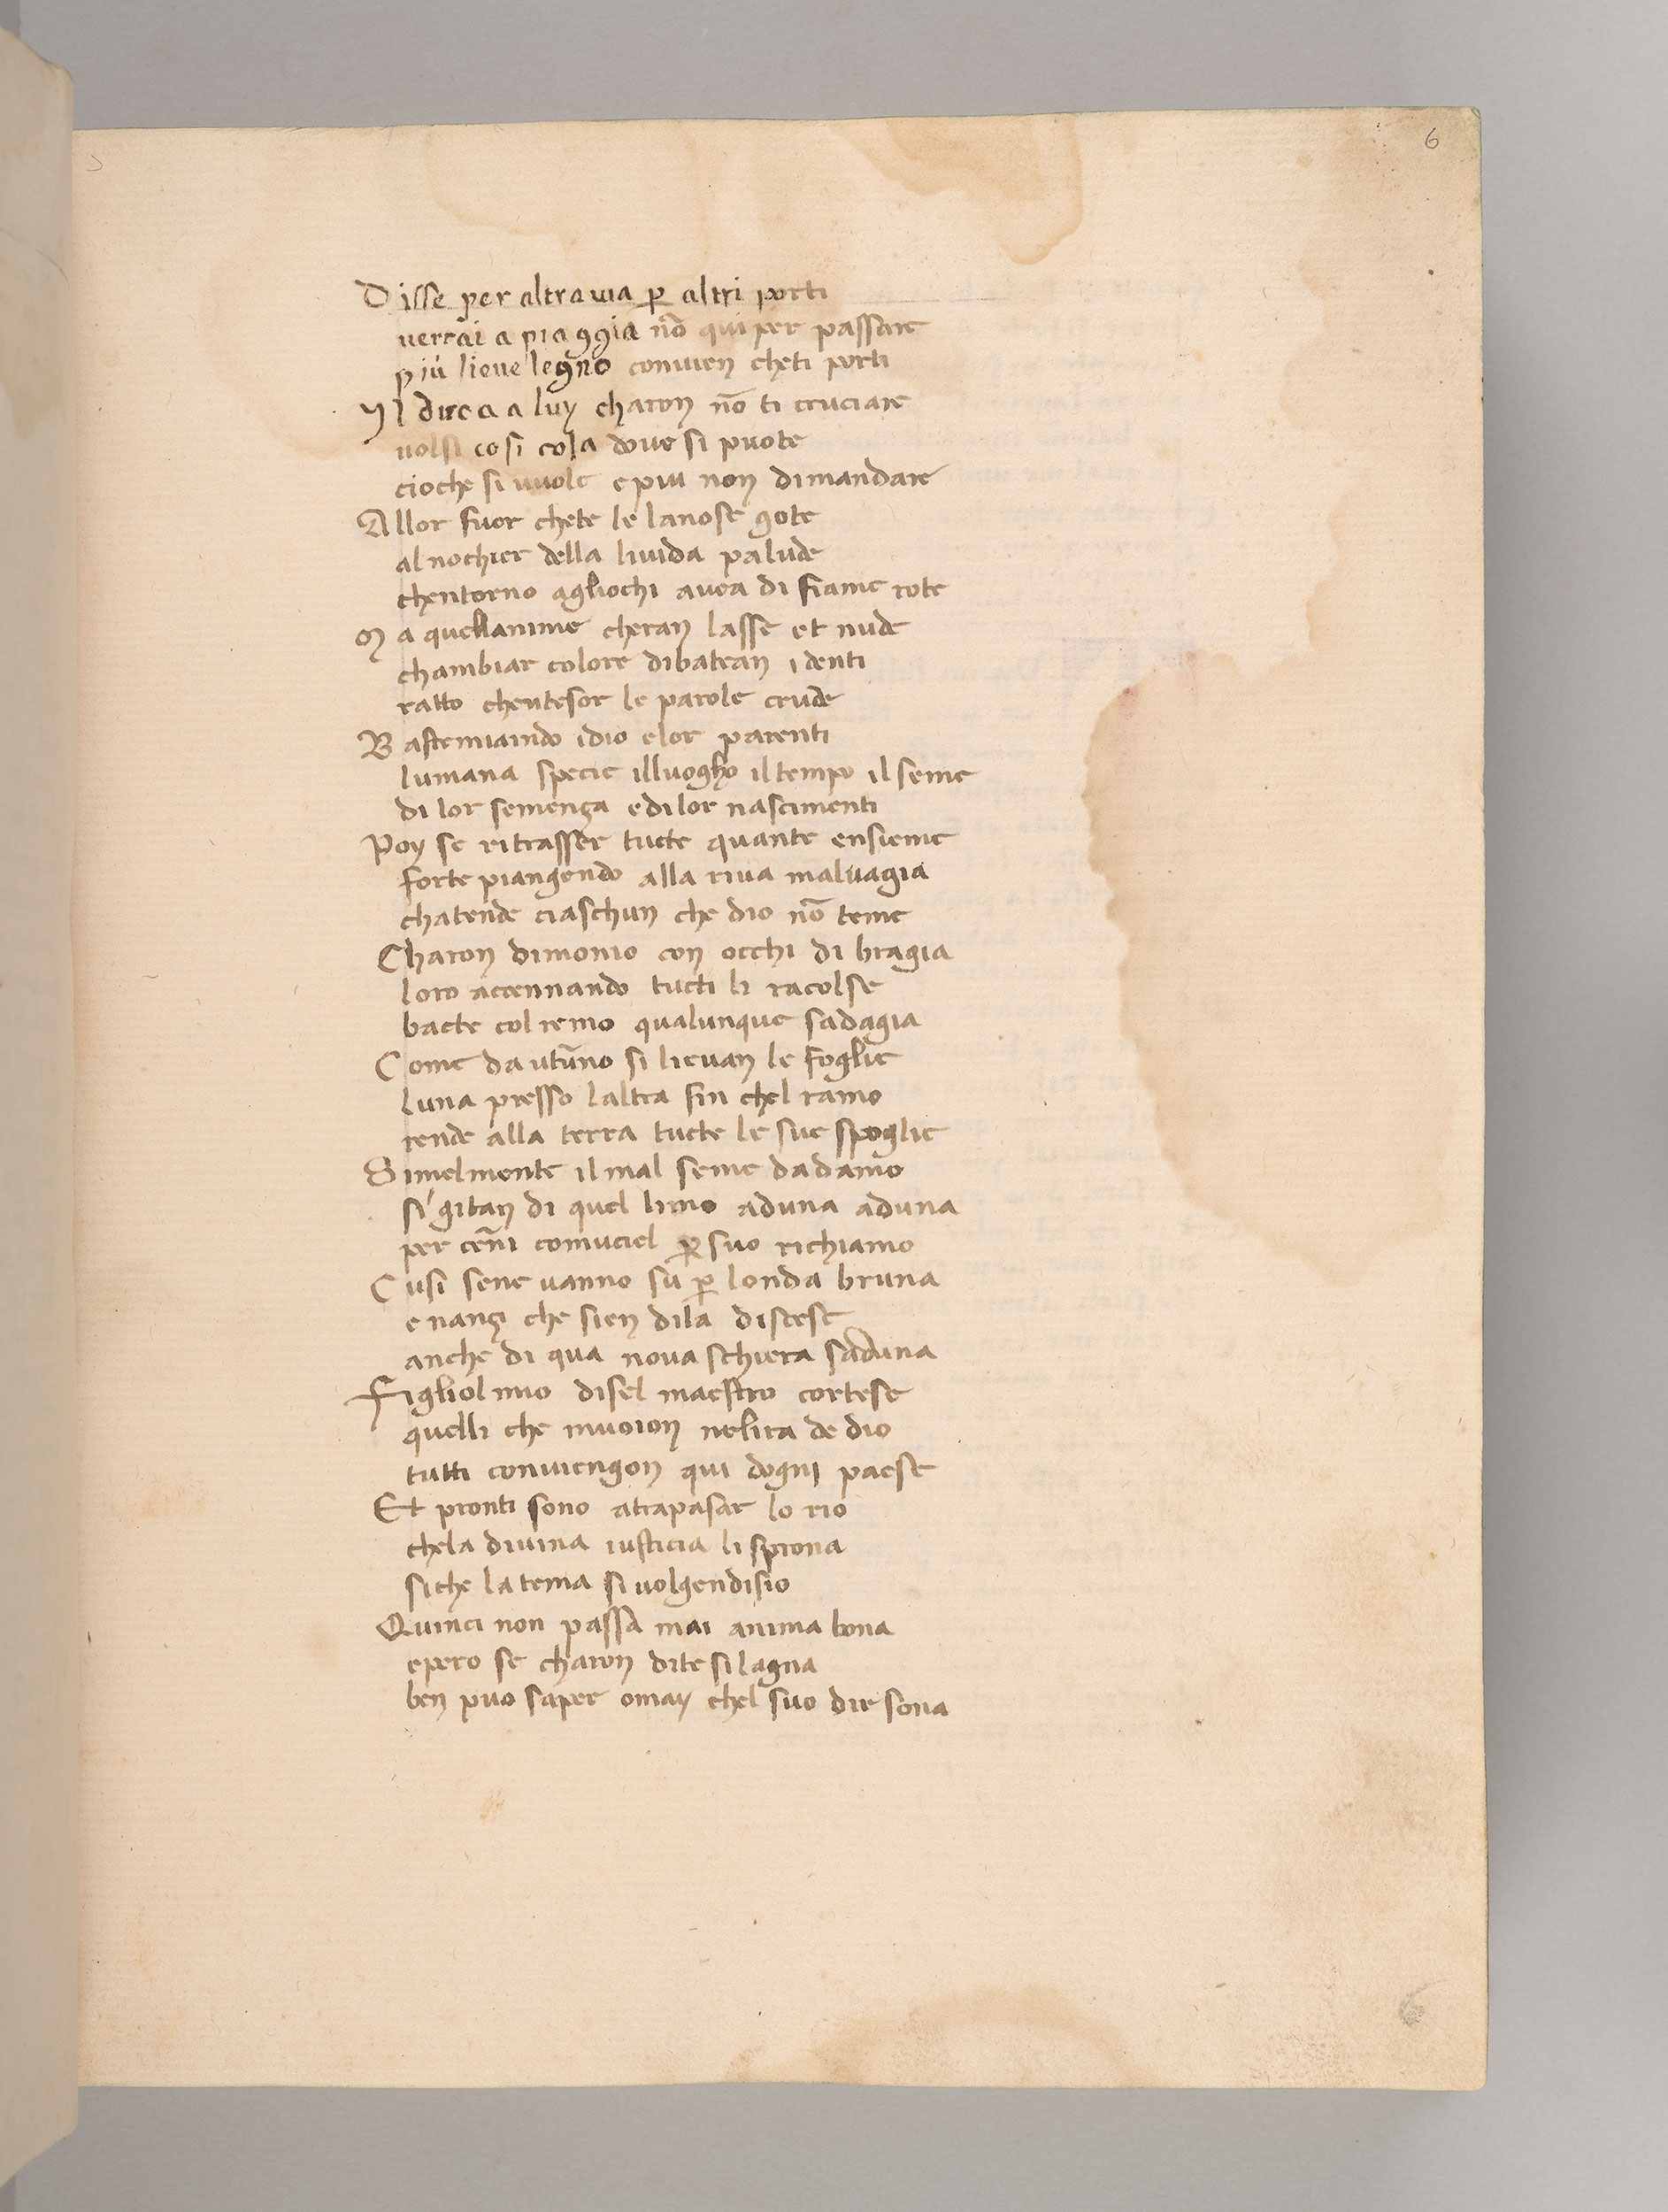 6
Disse per altra uia ꝑ altri porti
uerrai a piaggia nō qui per passare
più lieue legno conuien cheti porti
Il duca a luy charon nō ti cruciare
uolsi cosi cola doue si puote
cioche si uuole e piu non dimandare
Allor fuor chete le lanose gote
al nochier della liuida palude
chentorno agliochi auea di fiame rote
Ma quellanime cheran lasse et nude
chambiar colore dibatean i denti
ratto chentesor le parole crude
Bastemiando idio elor parenti
lumana specie illuogho il tempo il seme
di lor semenza edi lor nascimenti
Poy se ritrasser tucte quante ensieme
forte piangendo alla riua maluagia
chatende ciaschun che dio nō teme
Charon dimonio con occhi di bragia
loro accennando tucti li racolse
bacte col remo qualunque sadagia
Come dautūno si lieuan le foglie
luna presso laltra fin chel ramo
rende alla terra tucte le sue spoglie
Simelmente il mal seme dadamo
si gitan di quel limo aduna aduna
per cenī comuciel ꝑ suo richiamo
Cusi sene uanno su ꝑ londa bruna
e nanzi che sien dila discese
anche di qua noua schiera saduna
Figliol mio disel maestro cortese
quelli che muoion nelira de dio
tutti conuiengon qui dogni paese
Et pronti sono atrapasar lo rio
chela diuina iusticia li sprona
siche la tema si uolgendisio
Quinci non passa mai anima bona
epero se charon dite si lagna
ben puo saper omay chel suo dir sona
6